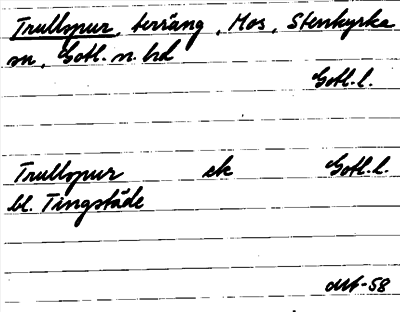 Trullspur, terräng, Mos, Stenkyrka
sn, Gotl. n. hd
Gotl. l.
Trullspur ek Gotl. l.
bl. Tingstäde